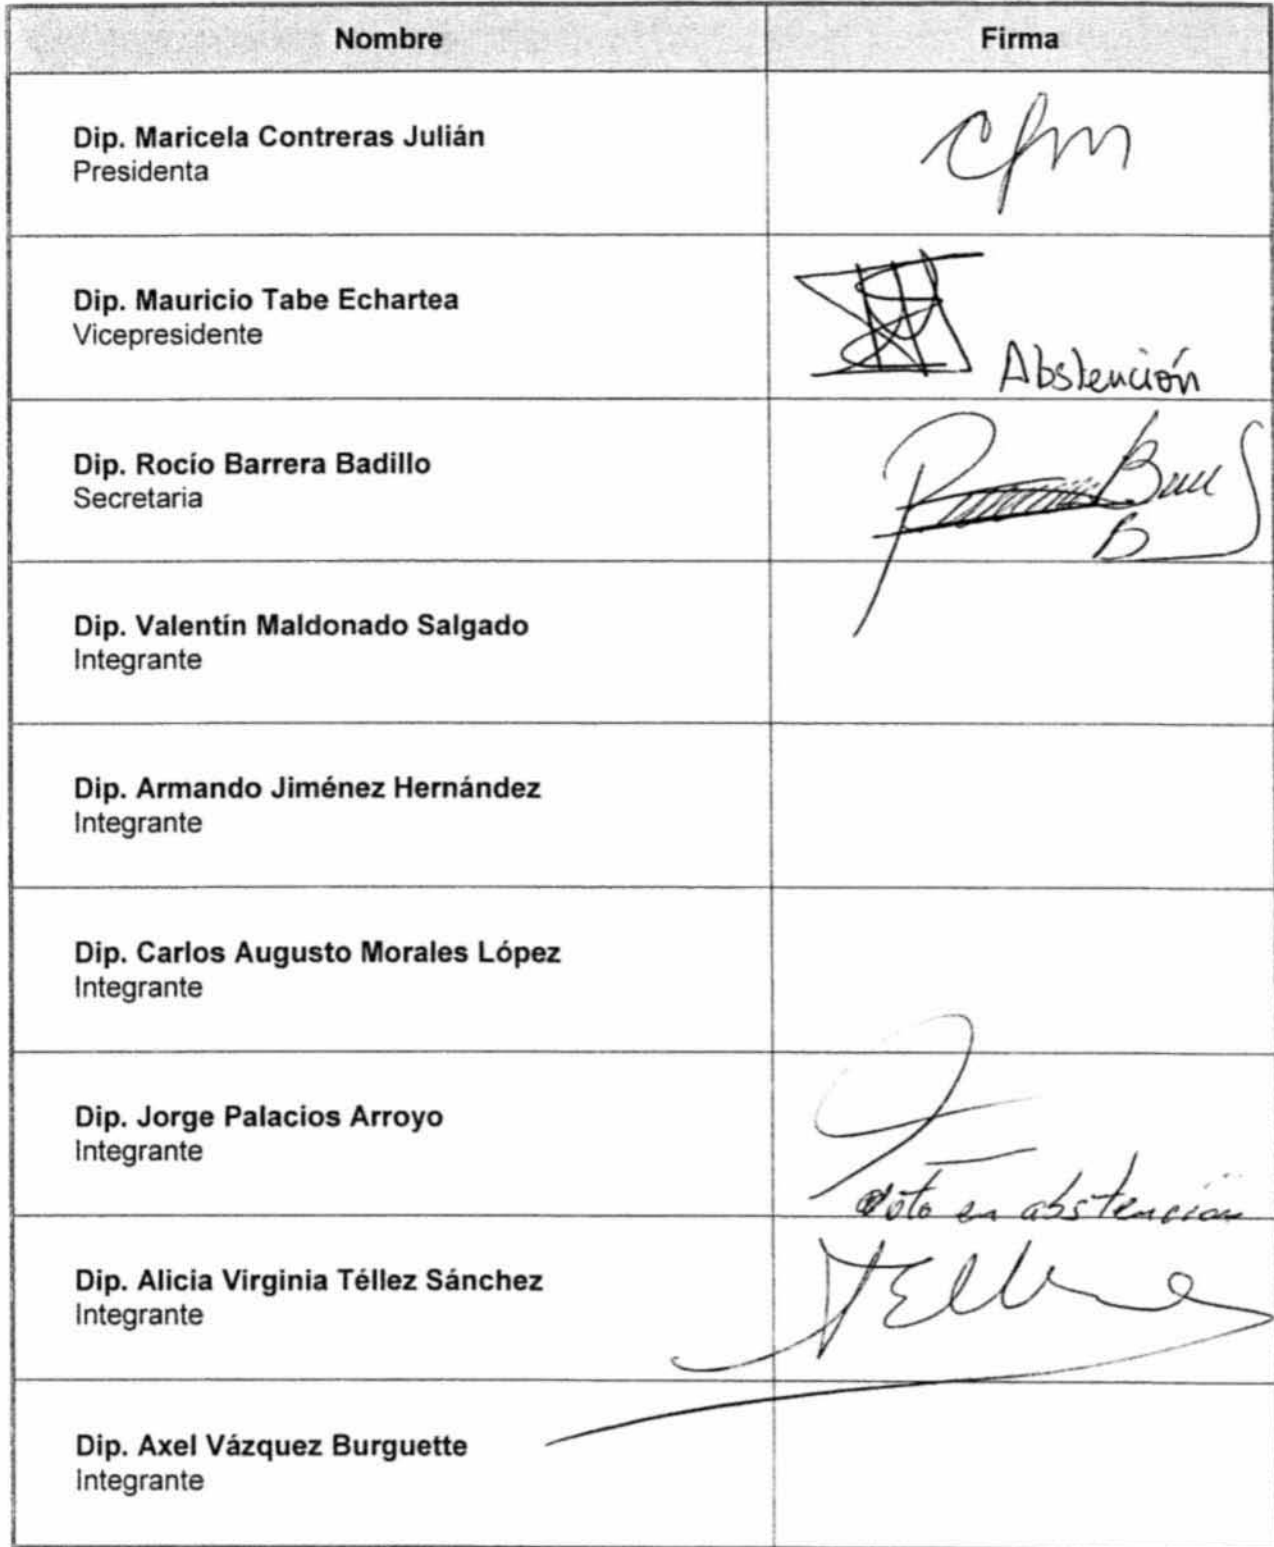 Nombre Firma
Dip. Maricela Contreras Julián
Presidenta
Dip. Mauricio Tabe Echartea
Vicepresidente
Abstención
Dip. Rocío Barrera Badillo
Secretaria
Dip. Valentín Maldonado Salgado
Integrante
Dip. Armando Jiménez Hernández
Integrante
Dip. Carlos Augusto Morales López
Integrante
Dip. Jorge Palacios Arroyo
Integrante
voto en abstención
Dip. Alicia Virginia Téllez Sánchez
Integrante
Dip. Axel Vázquez Burguette
Integrante